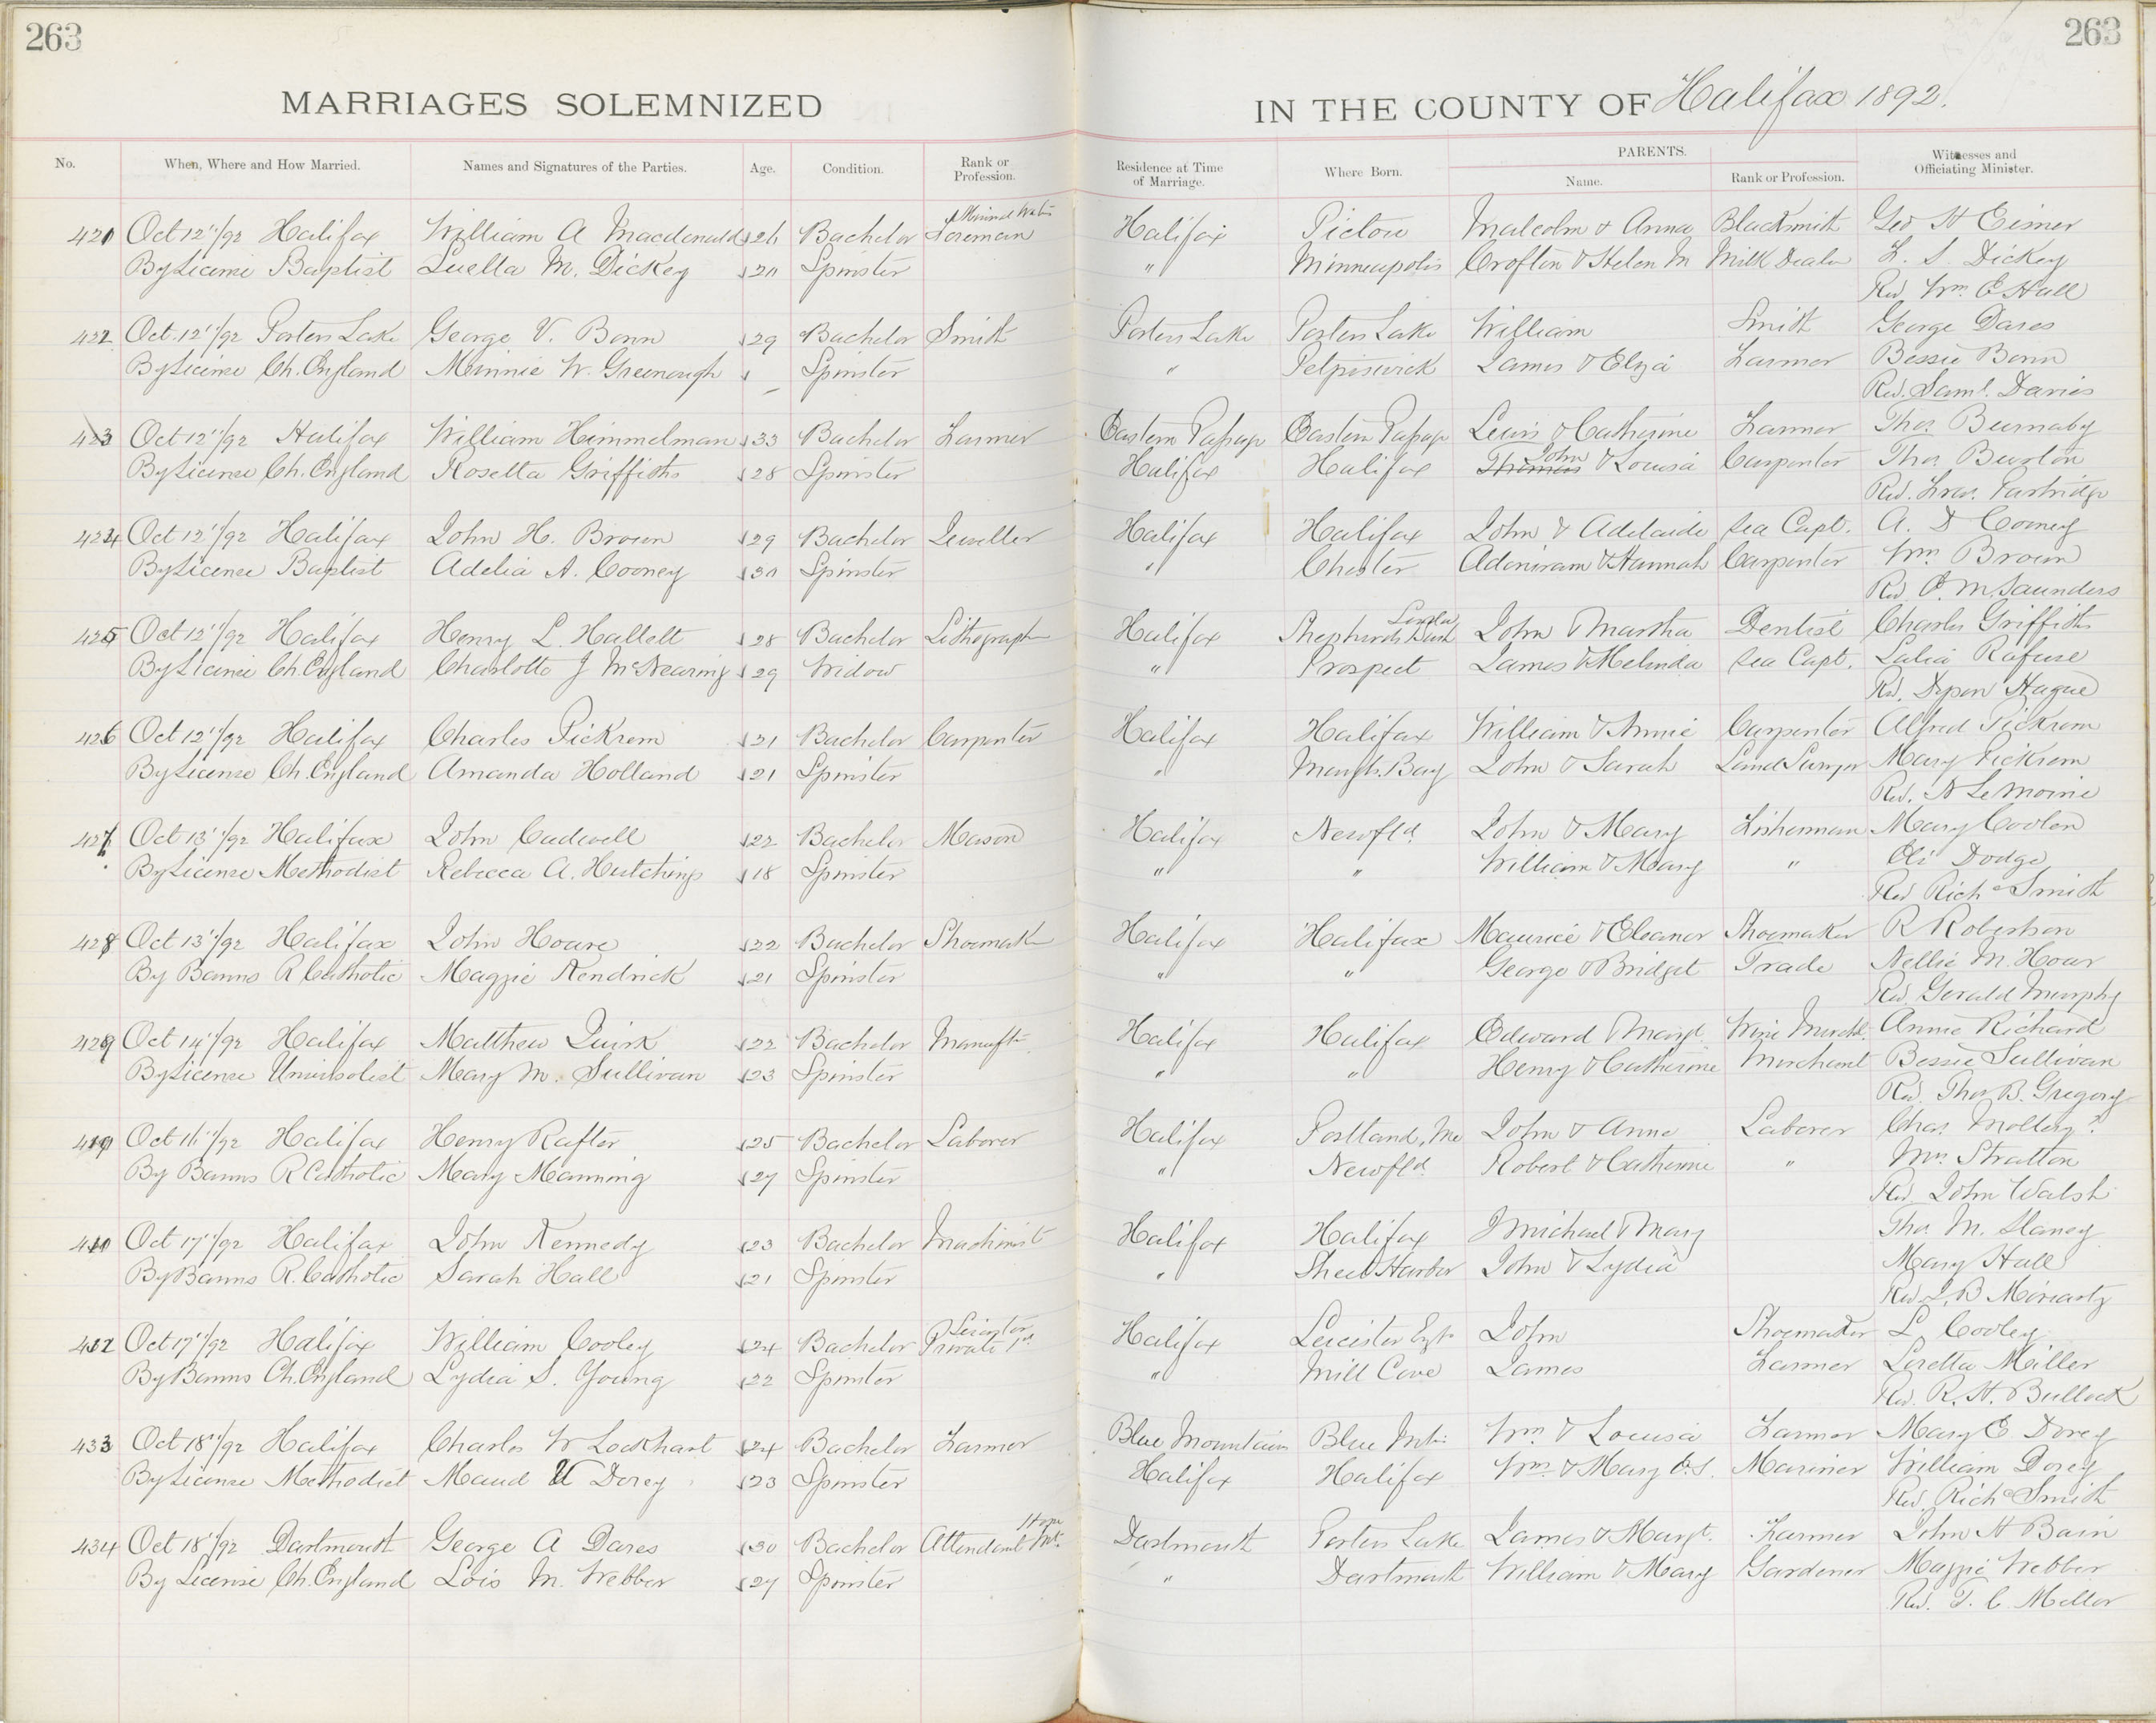 263
263
MARRIAGES SOLEMNIZED
IN THE COUNTY OF Halifax 1892.
No. When, Where and How Married. Names and Signatures of the Parties. Age. Condition. Rank or Profession. Residence at Time of Marriage. Where Born. PARENTS. Name. Rank or Profession. Witnesses and Officiating Minister.
Mineral Water
421 Oct 12"/92 Halifax William A Macdonald 26 Bachelor Foreman Halifax Pictou Malcolm & Anna Blacksmith Geo H
By License Baptist Luella M. Dickey 20 Spinster " Minneapolis Crofton & Helen M Milk Dealer L. S. Dickey
Rev Wm E Hall
422 Oct. 12"/92 Porters Lake George V. Bonn 29 Bachelor Smith Porters Lake Porters Lake William Smith George Dares
By License Ch. England Minnie W. Greenough Spinster " Petpiswick James & Eliza Farmer Bessie Bonn
Rev. Saml. Davies
423 Oct 12"/92 Halifax William Himmelman 33 Bachelor Farmer Eastern Passage Eastern Passage Lewis & Catherine Farmer Thos. Burnaby
By License Ch. England Rosetta Griffiths 28 Spinster Halifax Halifax Thomas John & Louisa Carpenter Thos. Burton
Rev. Fras. Partridge
424 Oct 12"/92 Halifax John H. Brown 29 Bachelor Jeweller Halifax Halifax John & Adelaide Sea Capt. A. D Cooney
By License Baptist Adelia A. Cooney 30 Spinster " Chester Adoniram & Hannah Carpenter Wm. Brown
Rev. E. M. Saunders
London
425 Oct 12"/92 Halifax Henry L. Hallett 28 Bachelor Lithographer Halifax Shepherds Bush John & Martha Dentist Charles Griffiths
By License Ch. England Charlotte J McNearing 29 Widow " Prospect James & Melinda Sea Capt. Lalia Rafuse
Rev. Dyson Hague
426 Oct 12"/92 Halifax Charles Pickrem 21 Bachelor Carpenter Halifax Halifax William & Annie Carpenter Alfred Pickrem
By License Ch. England Amanda Holland 21 Spinster " Margts. Bay John & Sarah Land Survyr Mary Pickrem
Rev. N LeMoine
427 Oct 13"/92 Halifax John Cadwell 22 Bachelor Mason Halifax Newfld. John & Mary Fisherman Mary Coolen
By License Methodist Rebecca A. Hutchings 18 Spinster " " William & Mary " Eli Dodge
Rev Richd Smith
428 Oct 13"/92 Halifax John Hoare 22 Bachelor Shoemaker Halifax Halifax Maurice & Eleanor Shoemaker R Robertson
By Banns R Catholic Maggie Kendrick 21 Spinster " " George & Bridget Trade Nellie M. Hoar
Rev. Gerald Murphy
429 Oct 14"/92 Halifax Matthew Quirk 22 Bachelor Manuftr Halifax Halifax Edward & Margt. Wine Mercht. Annie Richard
By License Universolist Mary M. Sullivan 23 Spinster " " Henry & Catherine Merchant Bessie Sullivan
Rev. Thos B. Gregory
Oct 16"/92 Halifax Henry Rafter 25 Bachelor Laborer Halifax Portland, Me John & Anne Laborer Chas. Molloy?
By Banns R Catholic Mary Manning 27 Spinster " Newfld. Robert & Catherine " Mrs. Stratton
Rev. John Walsh
Oct 17"/92 Halifax John Kennedy 23 Bachelor Machinist Halifax Halifax Michael & Mary Thos. M. Slaney
By Banns R. Catholic Sarah Hall 21 Spinster " Sheet Harbor John & Lydia Mary Hall
Rev. J. B Moriarty
Leicester
432 Oct 17"/92 Halifax William Cooley 24 Bachelor Private 1st Halifax Leicester Eng. John Shoemaker L. Cooley
By Banns Ch. England Lydia S. Young 22 Spinster " Mill Cove James Farmer Loretta Miller
Rev. R. H. Bullock
433 Oct 18"/92 Halifax Charles W Lockhart 24 Bachelor Farmer Blue Mountain Blue Mtn. Wm. & Louisa Farmer Mary E Dorey
By License Methodist Maud U Dorey 23 Spinster Halifax Halifax Wm. & Mary O.S. Mariner William Dorey
Rev. Richd Smith
434 Oct 18"/92 Dartmouth George A Dares 30 Bachelor Attendant Hospl Dartmouth Porters Lake James & Margt. Farmer John H Bain
By License Ch. England Lois M. Webber 27 Spinster " Dartmouth William & Mary Gardener Maggie Webber
Rev. T. C. Mellor